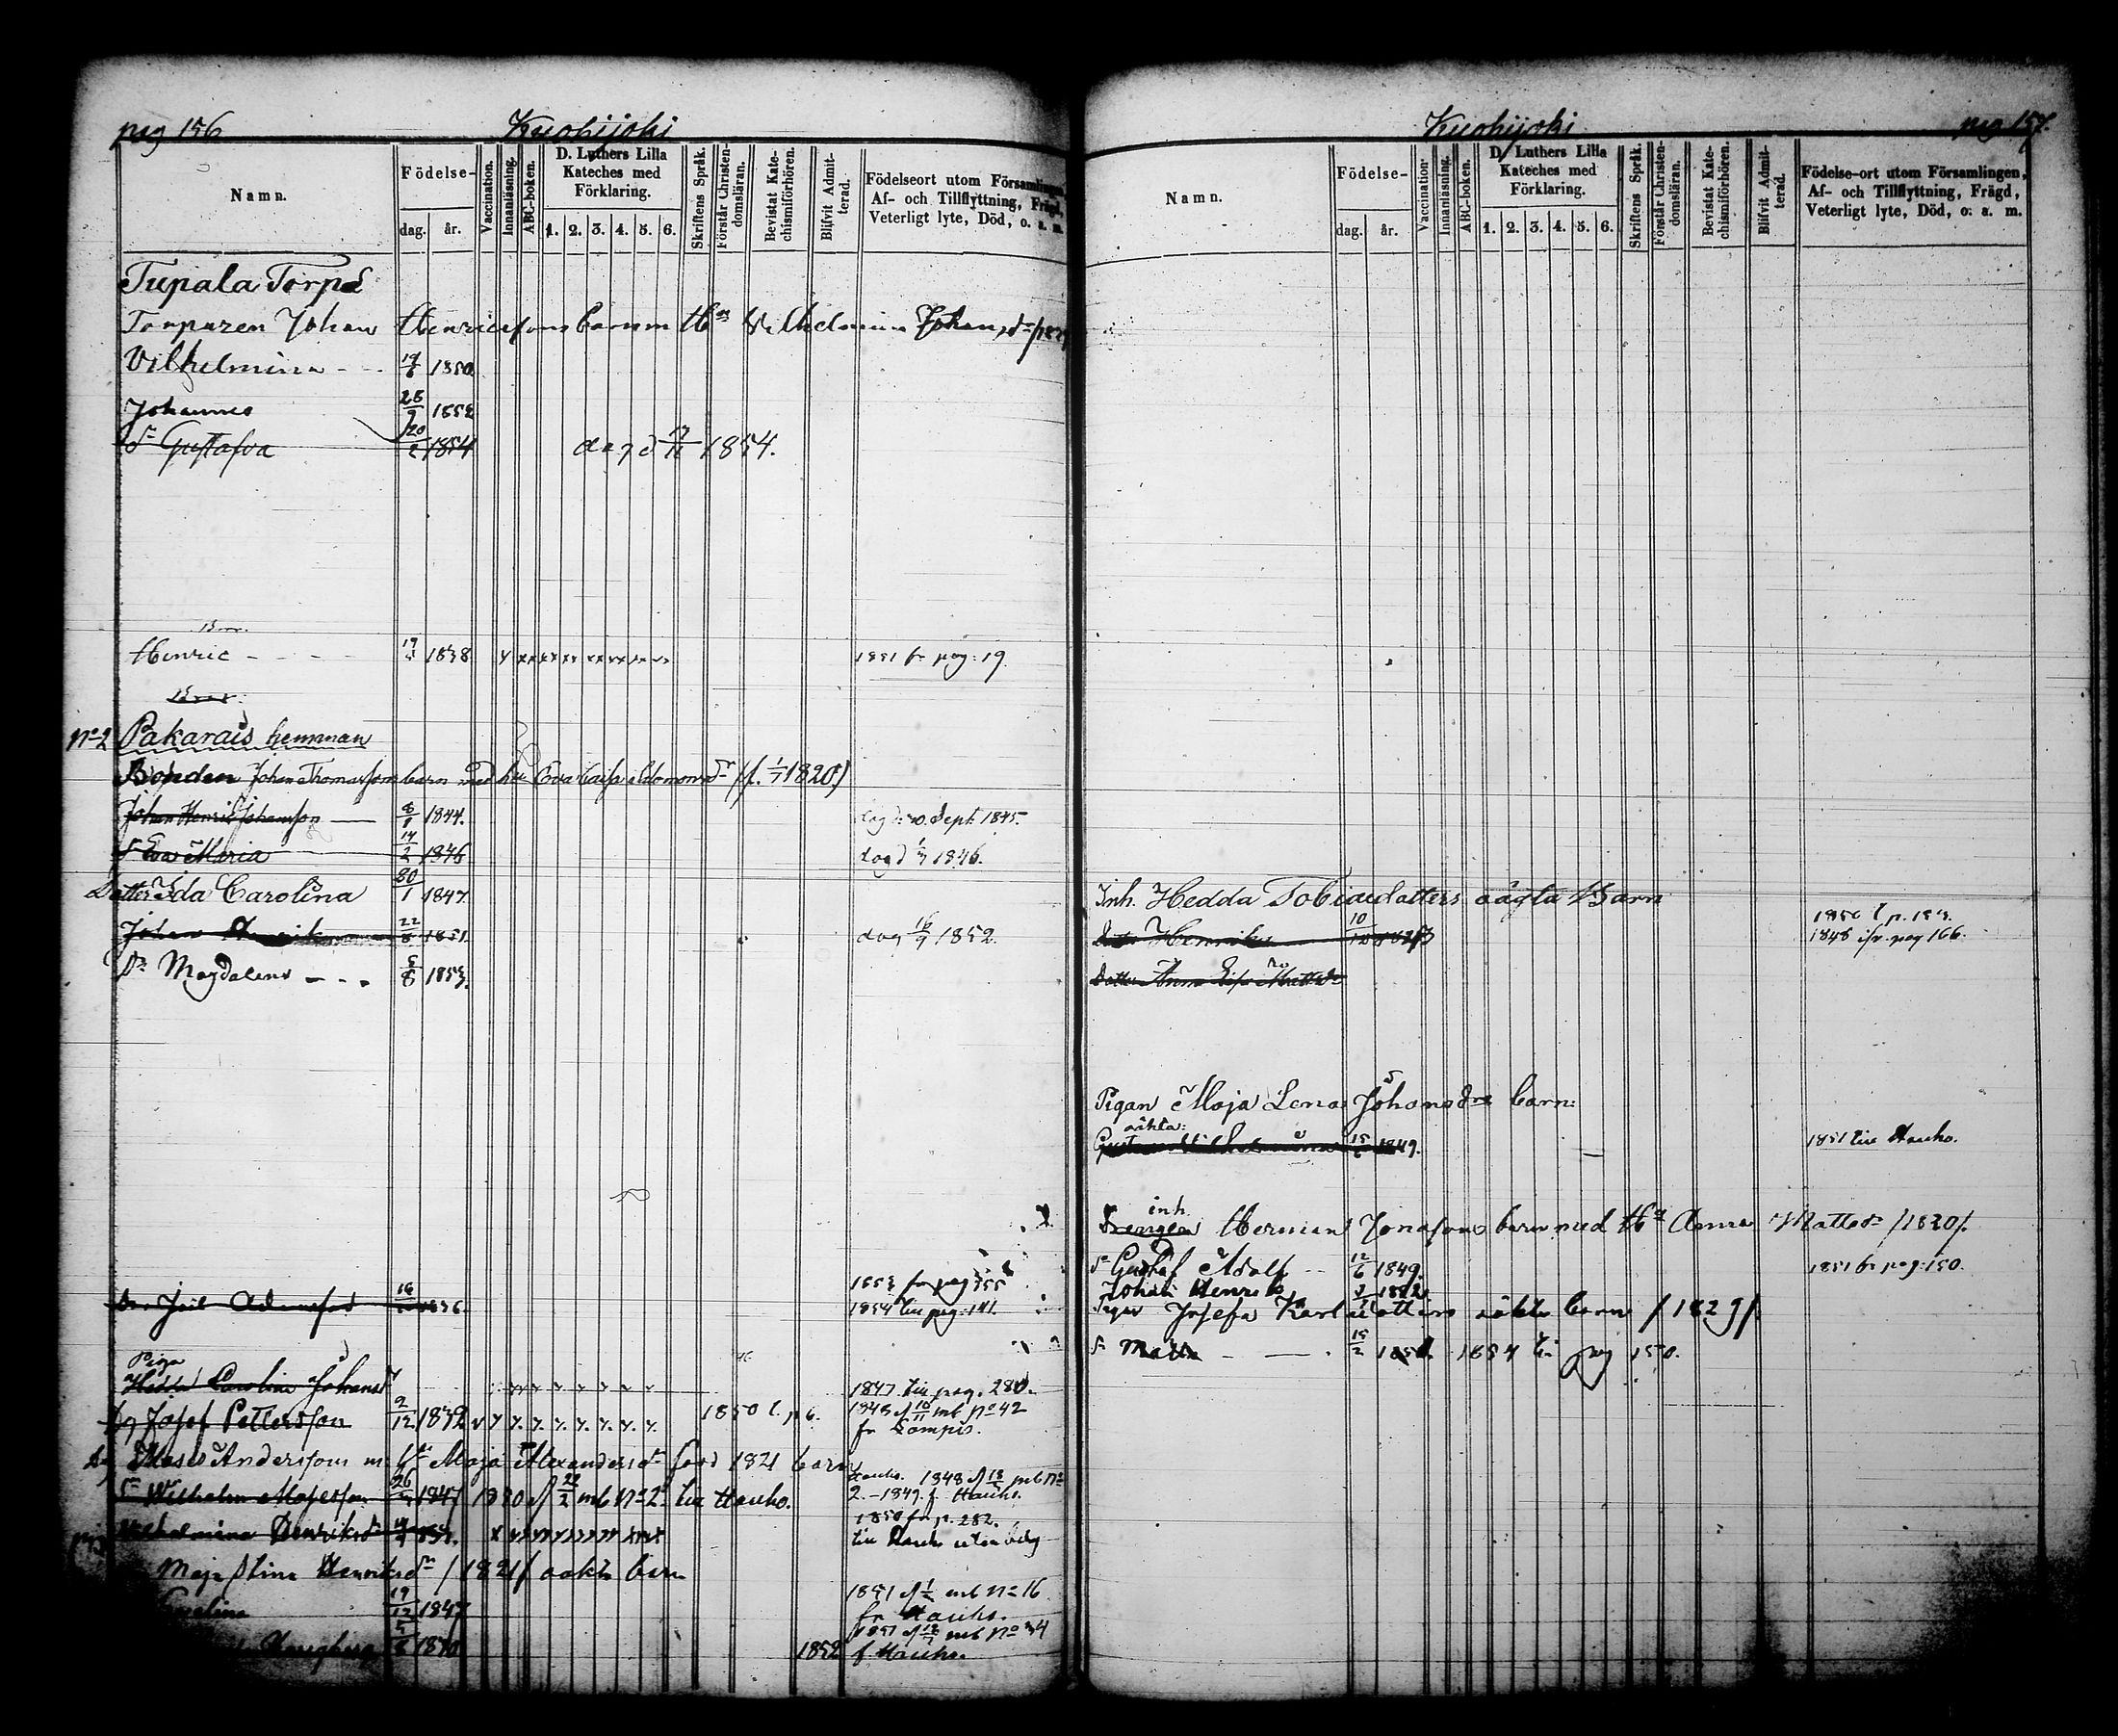 pag 156
Kuohijoki
Namn.
Födelse-
dag.
år.
Vaccination.
Innanläsning.
ABC-boken.
D. Luthers Lilla
Kateches med
Förklaring.
1. 2. 3. 4. 5. 6.
Skriftens Språk.
Förstår Christen-
domsläran.
Bevistat Kate-
chismiförhören.
Blifvit Admit-
terad.
Födelseort utom Församlingen,
Af- och Tillflyttning, Frägd,
Veterligt lyte, Död, o. s. m.
Torparen Johan Henricssons barn m Hu Vilhelmina Johansdr
Vilhelmina 1850
Johannes 1852
Dr Gustafva 1854 dog d 1854.
Henric 1838 1851 fr pag: 19
No 2 Pakarais hemman
Bonden Johan Thomassons barn med hu Eva Caisa (f. 1820)
Johan Henric Johansson 8/1 1844. dog d: 20. Sept. 1845.
Dr Eva Maria 14/2 1846 dog d 1846.
Dotter Ida Carolina 30/1 1847
Johan Henrik 22/8 1851 dog 16/9 1852.
Dr Magdalena 5/8 1853.
1853 fr pag 155
1836. 1854 till pag: 141.
Piga
Hedda Carolina Johansdr 1847 till pag. 280.
Josef Pettersson 2/12 1832 1850 t. p 6. 1848 10/11 mb No 42
fr Lampis.
Moses Anderssons m Hu Maja Alexandersdr född 1821 barn
Hauho. 1848 mb No
Sn Wilhelm Mosesson 1847 1850 22/2 mb No 2 till Hauho. 2. - 1849. f. Hauho.
1850 fr p. 282.
Vilhelmina Henriksdr till Hauho utan betyg
Maja Stina Henriksdr /1821/ oäkta barn
1851 mb No 16
Carolina 19/12 1847 fr Hauho.
1851 mb No 34
1852 f. Hauho.
Kuohijoki
pag 157.
Namn.
Födelse-
dag.
år.
Vaccination.
Innanläsning.
ABC-boken.
D. Luthers Lilla
Kateches med
Förklaring.
1. 2. 3. 4. 5. 6.
Skriftens Språk.
Förstår Christen-
domsläran.
Bevistat Kate-
chismiförhören.
Blifvit Admit-
terad.
Födelse-ort utom Församlingen,
Af- och Tillflyttning, Frägd,
Veterligt lyte, Död, o. s. m.
Inh. Hedda Tobiaedotters oägta Barn
Henrika 10 1848 ifr. pag 166.
Dotter Anna Lisa Mattsdr
Pigan Maja Lena Johansdrs barn:
oäkta:
Gustava Vilhelmina 15 1849. 1851 till Hauho.
inh.
Drengen Herman Jonassons barn med Hu Anna Mattsdr /1820/.
Sn Gustaf Adolf 12/6 1849. 1851 fr pag: 150.
Johan Henrik 1852
Pigan Josefa Karlsdotters oäkta barn /1829/.
Sn Matts 15/2 1854 till pag 150.